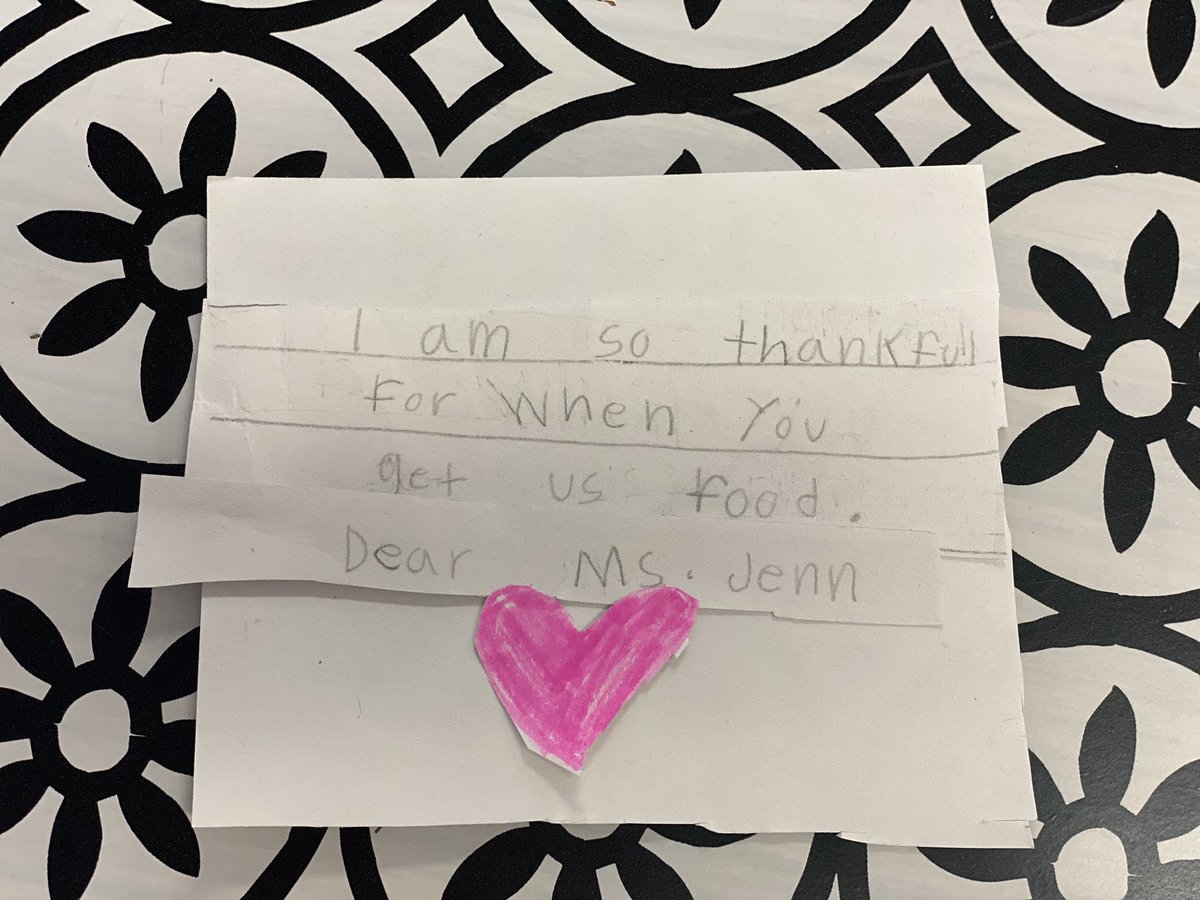 I am so thankfull
for When You
get us food.
Dear Ms. Jenn